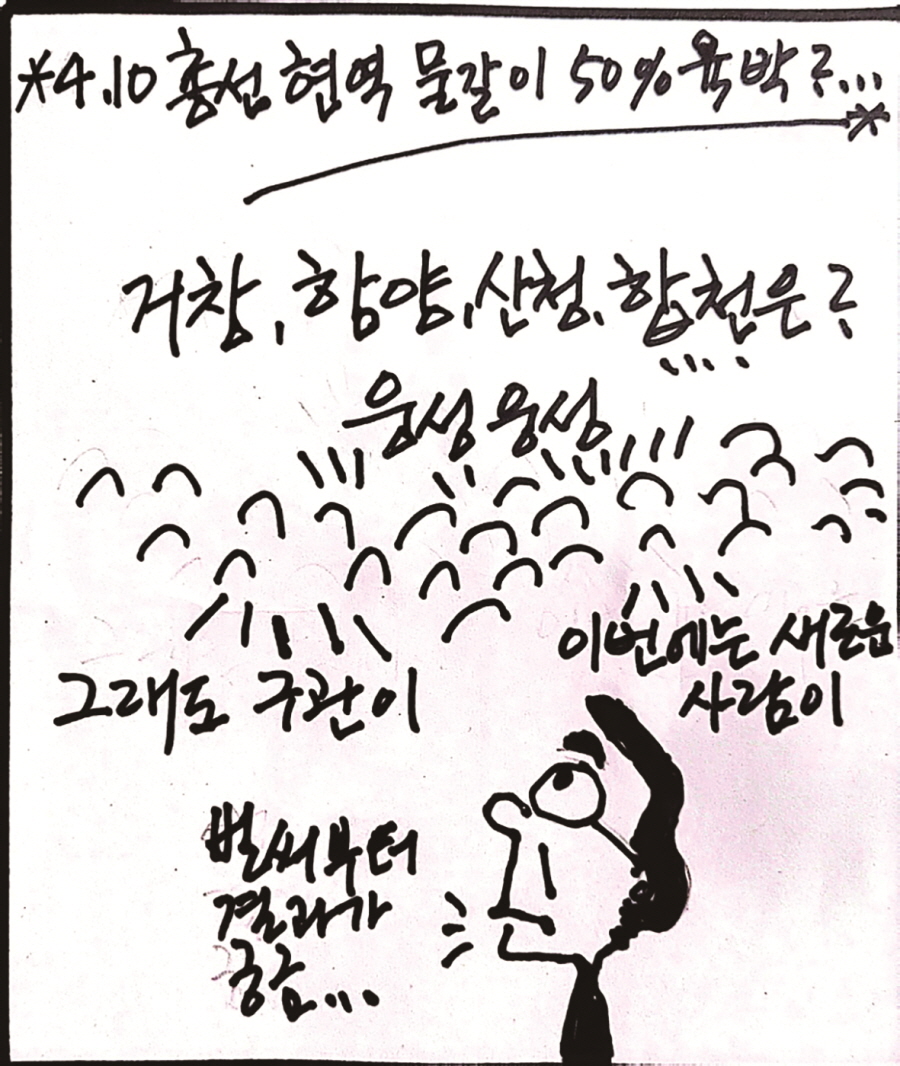 *4.10 총선 현역 물갈이 50% 육박?...*
거창, 함양, 산청, 합천은?
웅성웅성
그래도 구관이
이번에는 새로운
사람이
벌써부터
결과가
궁금...